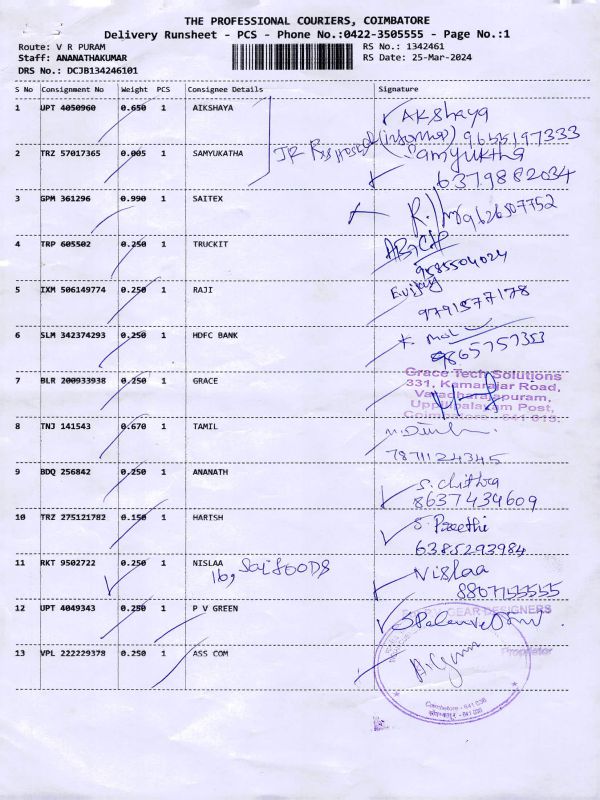 THE PROFESSIONAL COURIERS, COIMBATORE
Delivery Runsheet - PCS - Phone No.:0422-3505555 - Page No.:1
Route: V R PURAM
RS No.: 1342461
Staff: ANANATHAKUMAR
RS Date: 25-Mar-2024
DRS No.: DCJB134246101
S No Consignment No Weight PCS Consignee Details Signature
1 UPT 4050960 0.650 1 AIKSHAYA Akshaya
9655197333
2 TRZ 57017365 0.005 1 SAMYUKATHA Samyuktha
6379882034
3 GPM 361296 0.990 1 SAITEX
9626507752
4 TRP 605502 0.250 1 TRUCKIT
9585504024
5 IXM 506149774 0.250 1 RAJI E.vijay
9791577178
6 SLM 342374293 0.250 1 HDFC BANK
9865757353
7 BLR 200933938 0.250 1 GRACE Grace Tech Solutions
331, Kamarajar Road,
Varadharajapuram,
Uppilipalayam Post,
Coimbatore - 641 015.
8 TNJ 141543 0.670 1 TAMIL
7871124345
9 BDQ 256842 0.250 1 ANANATH S. chithra
8637434609
10 TRZ 275121782 0.150 1 HARISH S. Preethi
6385293984
11 RKT 9502722 0.250 1 NISLAA Nislaa
16, Sai fOODS
8807155555
12 UPT 4049343 0.250 1 P V GREEN
GEAR DESIGNERS
Proprietor
13 VPL 222229378 0.250 1 ASS COM
Coimbatore - 641 038